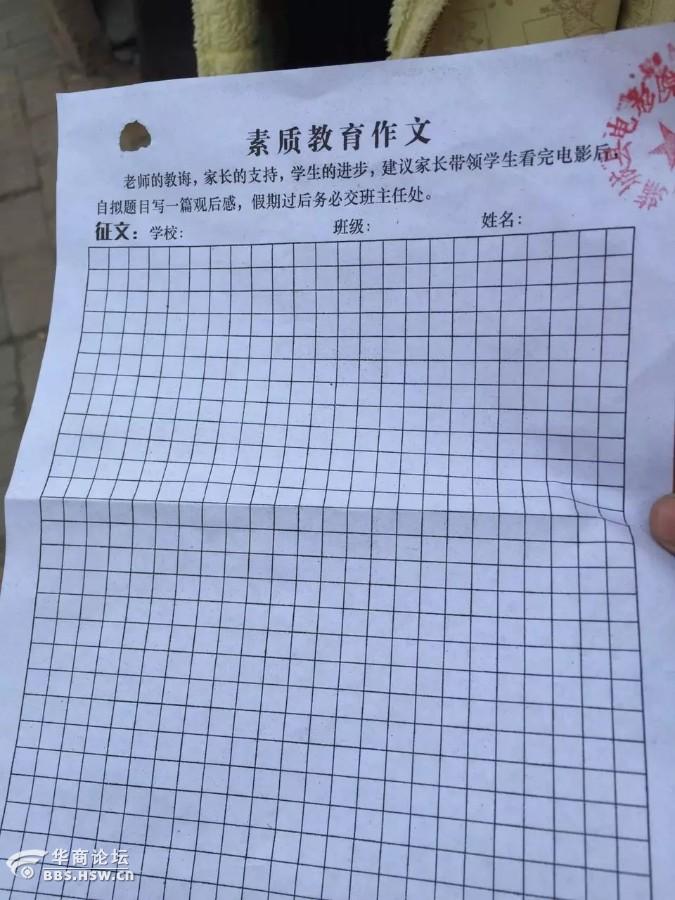 素质教育作文
老师的教诲，家长的支持，学生的进步，建议家长带领学生看完电影后，
自拟题目写一篇观后感，假期过后务必交班主任处。
征文：学校： 班级： 姓名：
华商论坛
BBS.HSW.CN